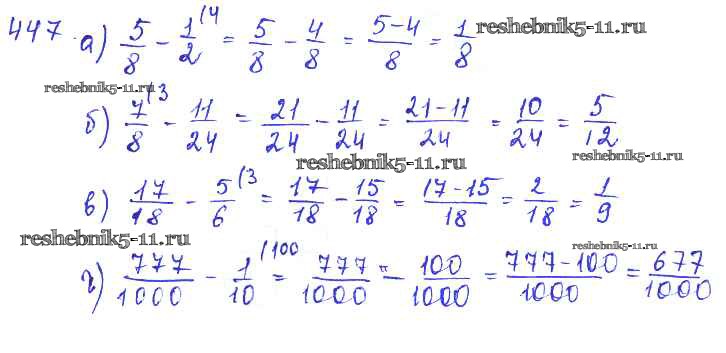 447. а) 5/8 - 1/2 (4 = 5/8 - 4/8 = 5-4/8 = 1/8 reshebnik5-11.ru
reshebnik5-11.ru
б) 7/8 (3 - 11/24 = 21/24 - 11/24 = 21-11/24 = 10/24 = 5/12
reshebnik5-11.ru reshebnik5-11.ru
в) 17/18 - 5/6 (3 = 17/18 - 15/18 = 17-15/18 = 2/18 = 1/9
reshebnik5-11.ru reshebnik5-11.ru
г) 777/1000 - 1/10 (100 = 777/1000 - 100/1000 = 777-100/1000 = 677/1000